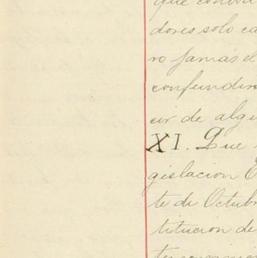 que conv
dores solo ca
ro jamás el
confundir
cir de algu
XI. Que
gislacion E
te de Octub
titucion de